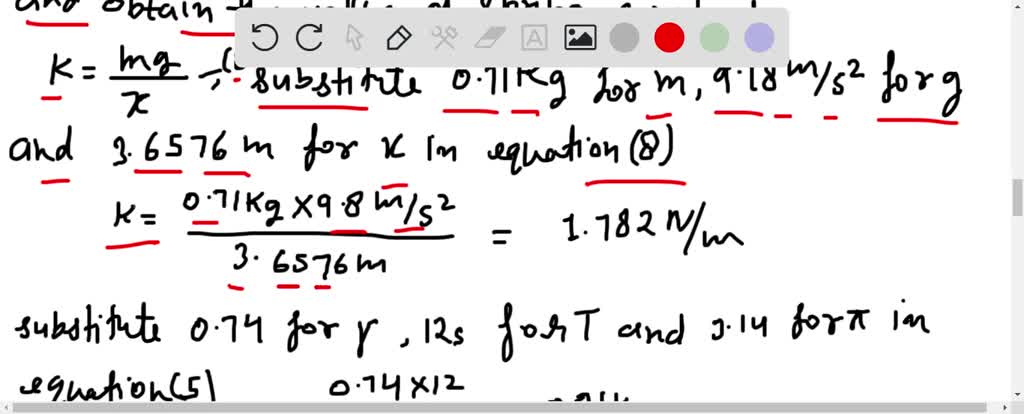 and obtain
K = mg/x substitute 0.71Kg for m, 9.18 m/s² for g
and 3.6576 m for x in equation (8)
K = 0.71Kg × 9.8 m/s² / 3.6576 m = 1.782 N/m
substitute 0.74 for γ, 12s for T and 3.14 for π in
equation (5) 0.74 × 12